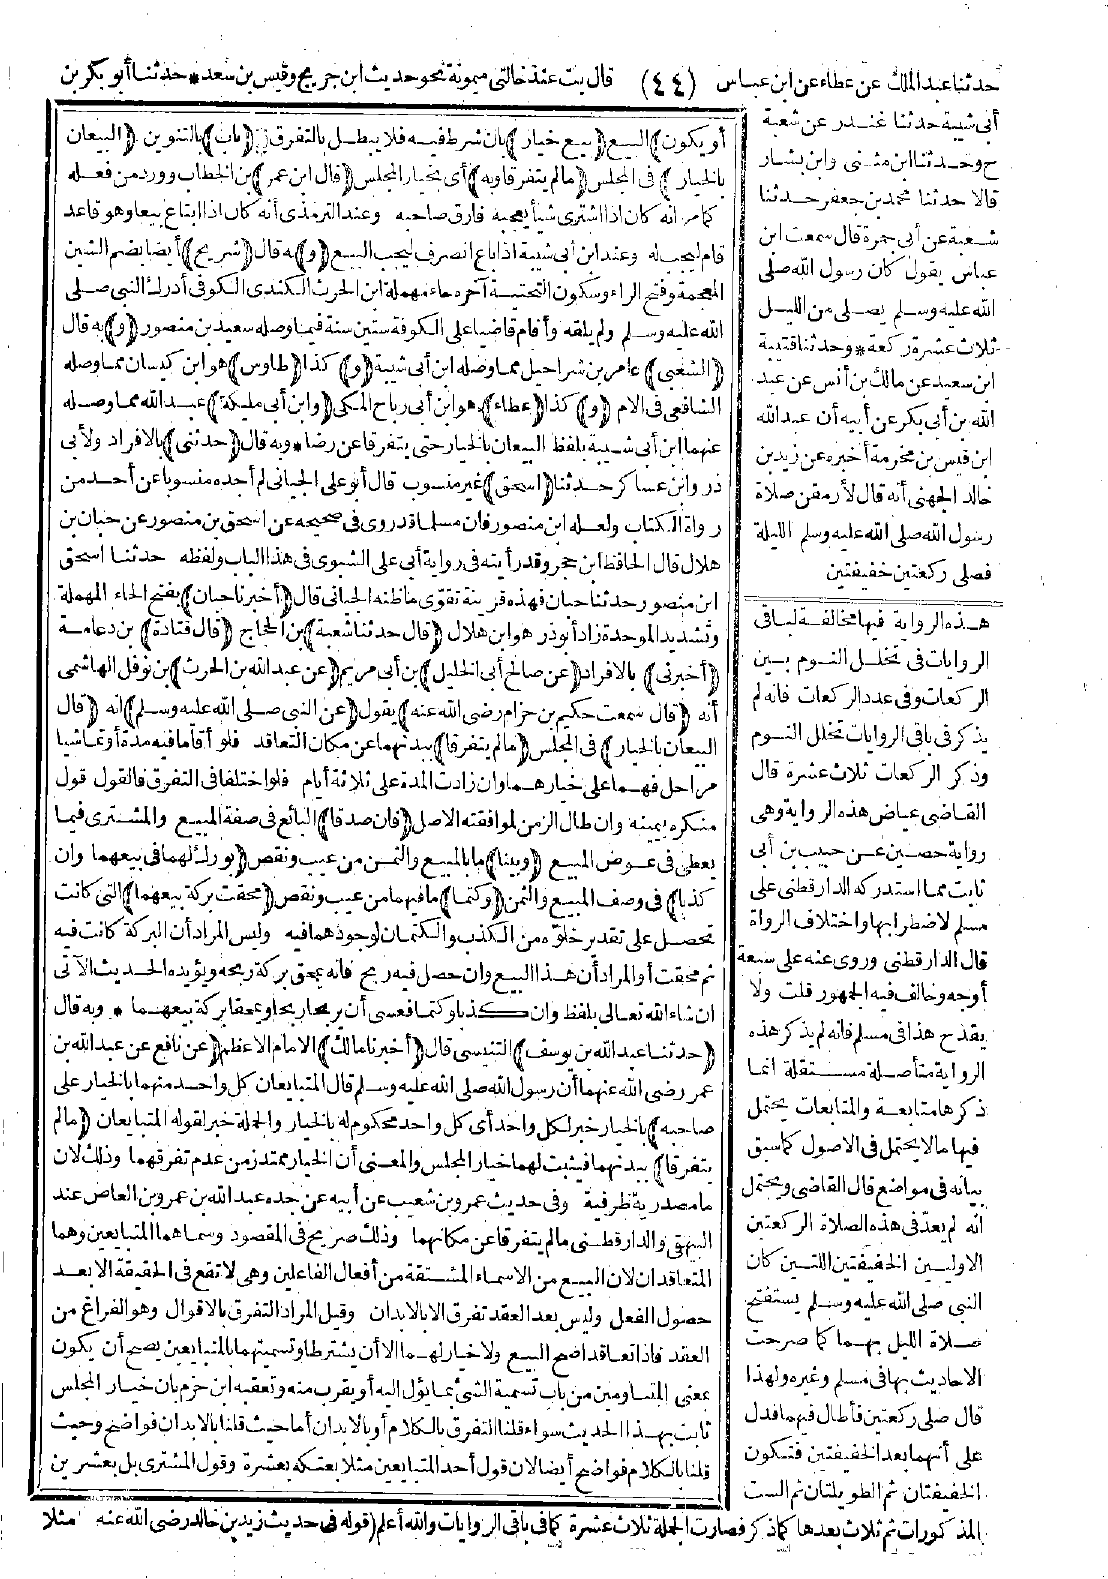 حدثنا عبد الملك عن عطاء عن ابن عباس (٤٤) قال بت عند خالتي ميمونة نحو حديث ابن جريج وقيس بن سعد * حدثنا أبو بكر بن
أبي شيبة حدثنا غندر عن شعبة
ح وحدثنا ابن مثنى وابن بشار
قالا حدثنا محمد بن جعفر حدثنا
شعبة عن أبي جمرة قال سمعت ابن
عباس يقول كان رسول الله صلى
الله عليه وسلم يصلي من الليل
ثلاث عشرة ركعة * وحدثنا قتيبة
ابن سعيد عن مالك بن أنس عن عبد
الله بن أبي بكر عن أبيه أن عبد الله
ابن قيس بن مخرمة أخبره عن زيد بن
خالد الجهني أنه قال لأرمقن صلاة
رسول الله صلى الله عليه وسلم الليلة
فصلى ركعتين خفيفتين
هذه الرواية فيها مخالفة لباقي
الروايات في تخلل النوم بين
الركعات وفي عدد الركعات فانه لم
يذكر في باقي الروايات تخلل النوم
وذكر الركعات ثلاث عشرة قال
القاضي عياض هذه الرواية وهي
رواية حصين عن حبيب بن أبي
ثابت مما استدركه الدارقطني على
مسلم لاضطرابها واختلاف الرواة
قال الدارقطني وروى عنه على سبعة
أوجه وخالف فيه الجمهور قلت ولا
يقدح هذا في مسلم فانه لم يذكر هذه
الرواية متأصلة مستقلة انما
ذكرها متابعة والمتابعات يحتمل
فيها مالا يحتمل في الاصول كما سبق
بيانه في مواضع قال القاضي ويحتمل
انه لم يعد في هذه الصلاة الركعتين
الاوليين الخفيفتين اللتين كان
النبي صلى الله عليه وسلم يستفتح
صلاة الليل بهما كما صرحت
الاحاديث بها في مسلم وغيره ولهذا
قال صلى ركعتين فأطال فيهما فدل
على أنهما بعد الخفيفتين فتكون
الخفيفتان ثم الطويلتان ثم الست
المذكورات ثم ثلاث بعدها كما ذكر فصارت الجملة ثلاث عشرة كما في باقي الروايات والله أعلم (قوله في حديث زيد بن خالد رضي الله عنه مثلا
أو يكون) البيع (بيع خيار) بان شرط فيه فلا يبطل بالتفرق (باب) بالتنوين (البيعان
بالخيار) في المجلس (مالم يتفرقا وبه) أي بخيار المجلس (قال ابن عمر) بن الخطاب وورد من فعله
كما مر انه كان اذا اشترى شيأ يعجبه فارق صاحبه وعند الترمذي أنه كان اذا ابتاع بيعا وهو قاعد
قام ليجب له وعند ابن أبي شيبة اذا باع انصرف ليجب البيع (و) به قال (شريح) أيضا بضم الشين
المعجمة وفتح الراء وسكون التحتية آخره حاء مهملة ابن الحرث الكندي الكوفي أدرك النبي صلى
الله عليه وسلم ولم يلقه وأقام قاضيا على الكوفة ستين سنة فيما وصله سعيد بن منصور (و) به قال
(الشعبي) عامر بن شراحيل مما وصله ابن أبي شيبة (و) كذا (طاوس) هو ابن كيسان مما وصله
الشافعي في الام (و) كذا (عطاء) هو ابن أبي رباح المكي (وابن أبي مليكة) عبد الله مما وصله
عنهما ابن أبي شيبة بلفظ البيعان بالخيار حتى يتفرقا عن رضا * وبه قال (حدثني) بالافراد ولأبي
ذر وابن عساكر حدثنا (اسحق) غير منسوب قال أبو علي الجياني لم أجده منسوبا عن أحد من
رواة الكتاب ولعله ابن منصور فان مسلما قد روى في صحيحه عن اسحق بن منصور عن حبان بن
هلال قال الحافظ ابن حجر وقد رأيته في رواية أبي علي الشبوي في هذا الباب ولفظه حدثنا اسحق
ابن منصور حدثنا حبان فهذه قرينة تقوي ما ظنه الجياني قال (أخبرنا حبان) بفتح الحاء المهملة
وتشديد الموحدة زاد أبو ذر هو ابن هلال (قال حدثنا شعبة) بن الحجاج (قال قتادة) بن دعامة
(أخبرني) بالافراد (عن صالح أبي الخليل) بن أبي مريم (عن عبد الله بن الحرث) بن نوفل الهاشمي
أنه (قال سمعت حكيم بن حزام رضي الله عنه) يقول (عن النبي صلى الله عليه وسلم) انه (قال
البيعان بالخيار) في المجلس (مالم يتفرقا) ببدنهما عن مكان التعاقد فلو أقاما فيه مدة أو تماشيا
مراحل فهما على خيارهما وان زادت المدة على ثلاثة أيام فلو اختلفا في التفرق فالقول قول
منكره بيمينه وان طال الزمن لموافقته الاصل (فان صدقا) البائع في صفة المبيع والمشتري فيما
يعطى في عوض المبيع (وبينا) ما بالمبيع والثمن من عيب ونقص (بورك لهما في بيعهما وان
كذبا) في وصف المبيع والثمن (وكتما) ما فيهما من عيب ونقص (محقت بركة بيعهما) التي كانت
تحصل على تقدير خلوه من الكذب والكتمان لوجودهما فيه وليس المراد أن البركة كانت فيه
ثم محقت أو المراد أن هذا البيع وان حصل فيه ربح فانه يمحق بركة ربحه ويؤيده الحديث الآتي
ان شاء الله تعالى بلفظ وان كذبا وكتما فعسى أن يربحا ربحا ويمحقا بركة بيعهما * وبه قال
(حدثنا عبد الله بن يوسف) التنيسي قال (أخبرنا مالك) الامام الاعظم (عن نافع عن عبد الله بن
عمر رضي الله عنهما أن رسول الله صلى الله عليه وسلم قال المتبايعان كل واحد منهما بالخيار على
صاحبه) بالخيار خبر لكل واحد أي كل واحد محكوم له بالخيار والجملة خبر لقوله المتبايعان (مالم
يتفرقا) ببدنهما فيثبت لهما خيار المجلس والمعنى أن الخيار ممتد زمن عدم تفرقهما وذلك لان
ما مصدرية ظرفية وفي حديث عمرو بن شعيب عن أبيه عن جده عبد الله بن عمرو بن العاص عند
البيهقي والدارقطني مالم يتفرقا عن مكانهما وذلك صريح في المقصود وسماهما المتبايعين وهما
المتعاقدان لان البيع من الاسماء المشتقة من أفعال الفاعلين وهي لا تقع في الحقيقة الا بعد
حصول الفعل وليس بعد العقد تفرق الا بالابدان وقيل المراد التفرق بالاقوال وهو الفراغ من
العقد فاذا تعاقدا صح البيع ولا خيار لهما الا أن يشترطا وتسميتهما بالمتبايعين يصح أن يكون
بمعنى المتساومين من باب تسمية الشئ بما يؤل اليه أو يقرب منه وتعقبه ابن حزم بان خيار المجلس
ثابت بهذا الحديث سواء قلنا التفرق بالكلام أو بالابدان أما حيث قلنا بالابدان فواضح وحيث
قلنا بالكلام فواضح أيضا لان قول أحد المتبايعين مثلا بعتكه بعشرة وقول المشتري بل بعشرين